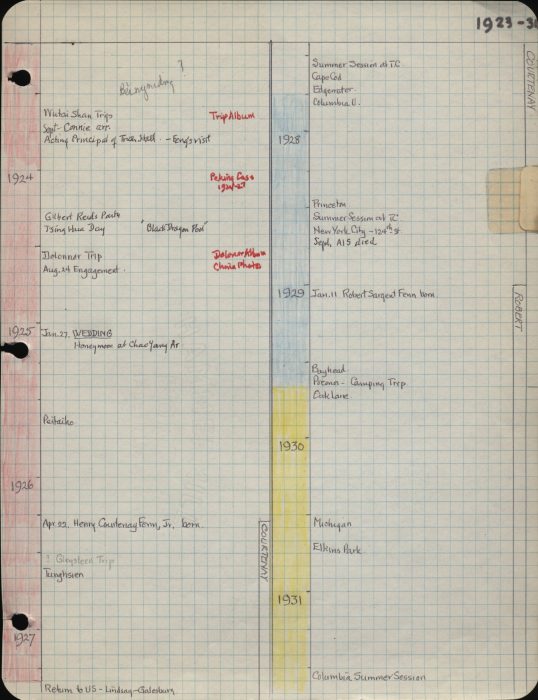 1923-30
COURTENAY
?
Wutai Shan Trip
Sept- Connie arr.
Trip Album
Acting Principal of Truth Hall - Feng's visit
1924
Peking Gaso
1924-27
Gilbert Reid's Party
Tsing Hua Day
"Black Dragon Pool"
Dolonor Trip
Dolonor Album
Aug. 24 Engagement.
China Photos
1925
Jan. 27. WEDDING
Honeymoon at Chao Yang An
Peitaiho
1926
Apr 22. Henry Courtenay Fenn, Jr. born
COURTENAY
? Gleysteen Trip
Tunghsien
1927
Return to US - Lindsay - Galesburg
Summer Session at T.C
Cape Cod
Edgewater
Columbia U.
1928
Princeton
Summer Session at TC
New York City - 124th St
Sept. AIS died
1929
Jan. 11 Robert Sargent Fenn born
ROBERT
Bayhead
Camping Trip
Oak Lane
1930
Michigan
Elkins Park
1931
Columbia Summer Session